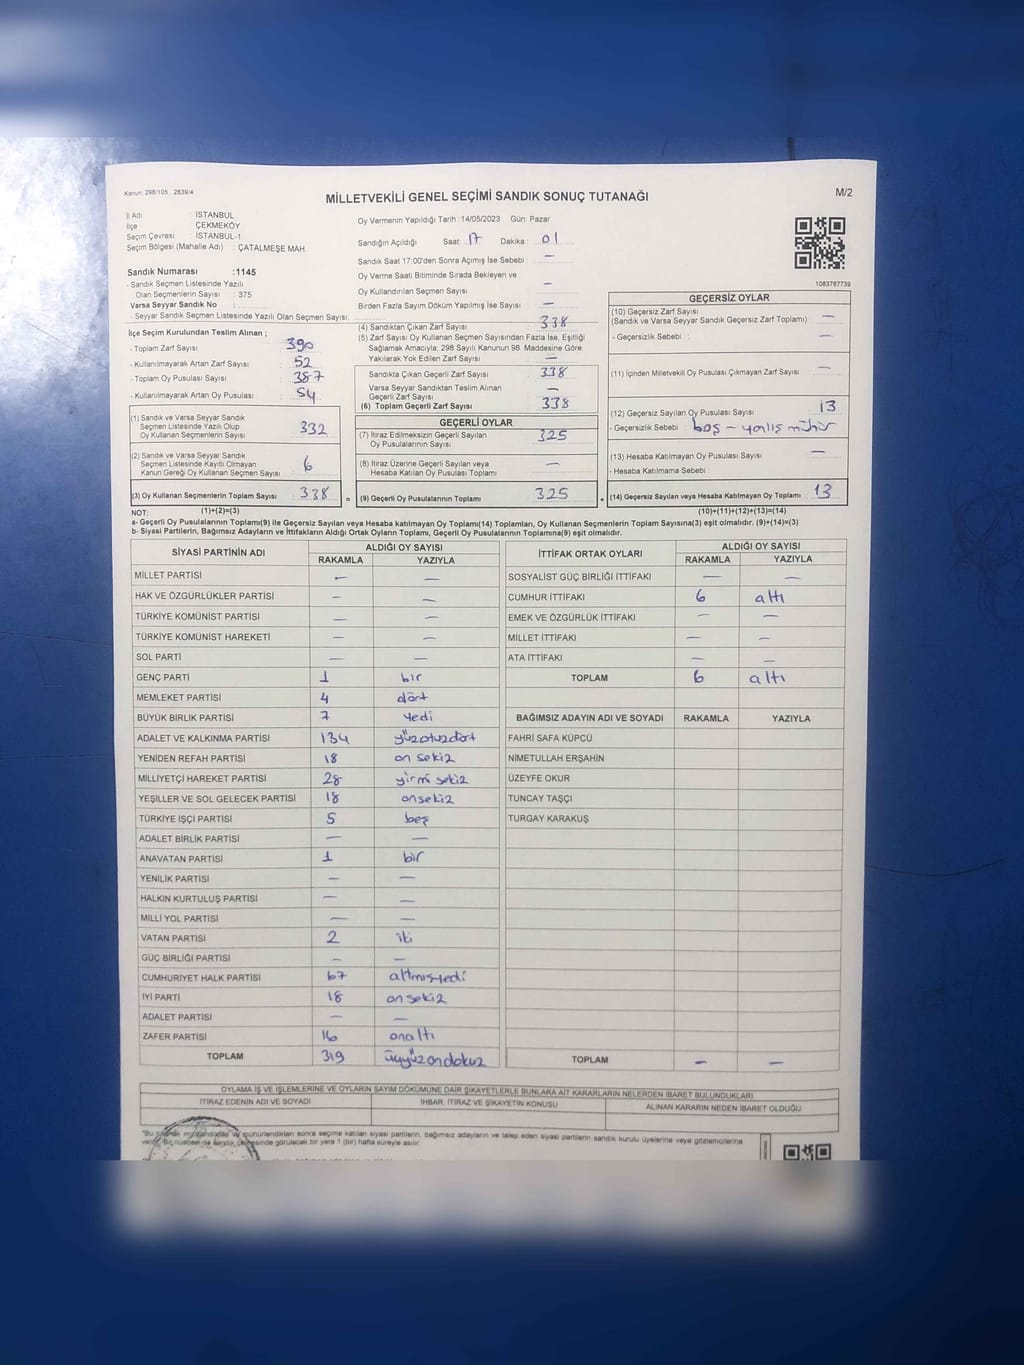 Kanun: 298/105 2839/4
MİLLETVEKİLİ GENEL SEÇİMİ SANDIK SONUÇ TUTANAĞI
M/2
İl Adı : İSTANBUL
İlçe ÇEKMEKÖY
Seçim Çevresi : İSTANBUL-1
Seçim Bölgesi (Mahalle Adı) : ÇATALMEŞE MAH
Sandık Numarası :1145
- Sandık Seçmen Listesinde Yazılı
Olan Seçmenlerin Sayısı : 375
Varsa Seyyar Sandık No :
- Seyyar Sandık Seçmen Listesinde Yazılı Olan Seçmen Sayısı:
Oy Vermenin Yapıldığı Tarih :14/05/2023 Gün: Pazar
Sandığın Açıldığı Saat: 17 Dakika: 01
Sandık Saat 17.00'den Sonra Açımış İse Sebebi : —
Oy Verme Saati Bitiminde Sırada Bekleyen ve
Oy Kullandırılan Seçmen Sayısı —
Birden Fazla Sayım Döküm Yapılmış İse Sayısı —
1083787739
İlçe Seçim Kurulundan Teslim Alınan ;
- Toplam Zarf Sayısı 390
- Kullanılmayarak Artan Zarf Sayısı 52
- Toplam Oy Pusulası Sayısı 387
- Kullanılmayarak Artan Oy Pusulası 54
(1) Sandık ve Varsa Seyyar Sandık
Seçmen Listesinde Yazılı Olup
Oy Kullanan Seçmenlerin Sayısı 332
(2) Sandık ve Varsa Seyyar Sandık
Seçmen Listesinde Kayıtlı Olmayan
Kanun Gereği Oy Kullanan Seçmen Sayısı 6
(3) Oy Kullanan Seçmenlerin Toplam Sayısı 338 =
(4) Sandıktan Çıkan Zarf Sayısı 338
(5) Zarf Sayısı Oy Kullanan Seçmen Sayısından Fazla İse, Eşitliği
Sağlamak Amacıyla; 298 Sayılı Kanunun 98. Maddesine Göre
Yakılarak Yok Edilen Zarf Sayısı —
Sandıkta Çıkan Geçerli Zarf Sayısı 338
Varsa Seyyar Sandıktan Teslim Alınan
Geçerli Zarf Sayısı —
(6) Toplam Geçerli Zarf Sayısı 338
GEÇERLİ OYLAR
(7) İtiraz Edilmeksizin Geçerli Sayılan
Oy Pusulalarının Sayısı 325
(8) İtiraz Üzerine Geçerli Sayılan veya
Hesaba Katılan Oy Pusulası Toplamı —
(9) Geçerli Oy Pusulalarının Toplamı 325 +
GEÇERSİZ OYLAR
(10) Geçersiz Zarf Sayısı
(Sandık ve Varsa Seyyar Sandık Geçersiz Zarf Toplamı) —
- Geçersizlik Sebebi : —
(11) İçinden Milletvekili Oy Pusulası Çıkmayan Zarf Sayısı —
(12) Geçersiz Sayılan Oy Pusulası Sayısı 13
- Geçersizlik Sebebi : boş - yanlış mühür
(13) Hesaba Katılmayan Oy Pusulası Sayısı —
- Hesaba Katılmama Sebebi :
(14) Geçersiz Sayılan veya Hesaba Katılmayan Oy Toplamı 13
NOT: (1)+(2)=(3) (10)+(11)+(12)+(13)=(14)
a- Geçerli Oy Pusulalarının Toplamı(9) ile Geçersiz Sayılan veya Hesaba katılmayan Oy Toplamı(14) Toplamları, Oy Kullanan Seçmenlerin Toplam Sayısına(3) eşit olmalıdır. (9)+(14)=(3)
b- Siyasi Partilerin, Bağımsız Adayların ve İttifakların Aldığı Oyların Toplamı, Geçerli Oy Pusulalarının Toplamına(9) eşit olmalıdır.
SİYASİ PARTİNİN ADI ALDIĞI OY SAYISI
RAKAMLA YAZIYLA
MİLLET PARTİSİ — —
HAK VE ÖZGÜRLÜKLER PARTİSİ — —
TÜRKİYE KOMÜNİST PARTİSİ — —
TÜRKİYE KOMÜNİST HAREKETİ — —
SOL PARTİ — —
GENÇ PARTİ 1 bir
MEMLEKET PARTİSİ 4 dört
BÜYÜK BİRLİK PARTİSİ 7 yedi
ADALET VE KALKINMA PARTİSİ 134 yüzotuzdört
YENİDEN REFAH PARTİSİ 18 on sekiz
MİLLİYETÇİ HAREKET PARTİSİ 28 yirmi sekiz
YEŞİLLER VE SOL GELECEK PARTİSİ 18 onsekiz
TÜRKİYE İŞÇİ PARTİSİ 5 beş
ADALET BİRLİK PARTİSİ — —
ANAVATAN PARTİSİ 1 bir
YENİLİK PARTİSİ — —
HALKIN KURTULUŞ PARTİSİ — —
MİLLİ YOL PARTİSİ — —
VATAN PARTİSİ 2 iki
GÜÇ BİRLİĞİ PARTİSİ — —
CUMHURİYET HALK PARTİSİ 67 altmışyedi
İYİ PARTİ 18 on sekiz
ADALET PARTİSİ — —
ZAFER PARTİSİ 16 onaltı
TOPLAM 319 üçyüzondokuz
İTTİFAK ORTAK OYLARI ALDIĞI OY SAYISI
RAKAMLA YAZIYLA
SOSYALİST GÜÇ BİRLİĞİ İTTİFAKI — —
CUMHUR İTTİFAKI 6 altı
EMEK VE ÖZGÜRLÜK İTTİFAKI — —
MİLLET İTTİFAKI — —
ATA İTTİFAKI — —
TOPLAM 6 altı
BAĞIMSIZ ADAYIN ADI VE SOYADI RAKAMLA YAZIYLA
FAHRİ SAFA KÜPCÜ
NİMETULLAH ERŞAHİN
ÜZEYFE OKUR
TUNCAY TAŞÇI
TURGAY KARAKUŞ
TOPLAM — —
OYLAMA İŞ VE İŞLEMLERİNE VE OYLARIN SAYIM DÖKÜMÜNE DAİR ŞİKAYETLERLE BUNLARA AİT KARARLARIN NELERDEN İBARET BULUNDUKLARI
İTİRAZ EDENİN ADI VE SOYADI İHBAR, İTİRAZ VE ŞİKAYETİN KONUSU ALINAN KARARIN NEDEN İBARET OLDUĞU
mühürlendikten sonra seçime katılan siyasi partilerin, bağımsız adayların ve talep eden siyasi partilerin sandık kurulu üyelerine veya gözlemcilerine
görülecek bir yere 1 (bir) hafta süreyle asılır.